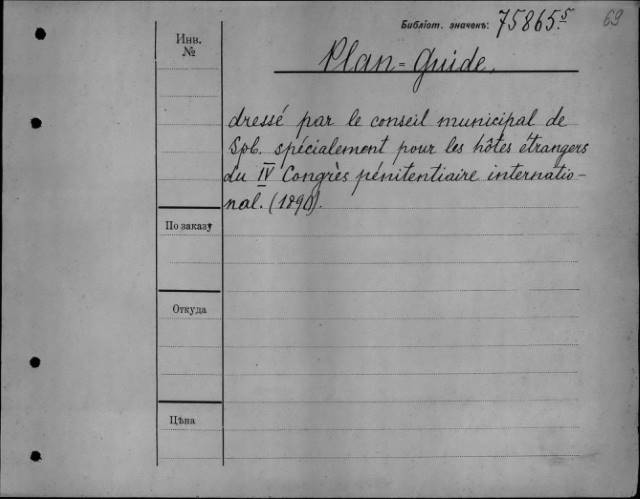 Библіот. значекъ: 75865.5 63
Инв.
№
Plan=Guide,
dressé par le conseil municipal de
Spb. spécialement pour les hôtes étrangers
du IV Congrès pénitentiaire internatio-
nal. (1890).
По заказу
Откуда
Цѣна